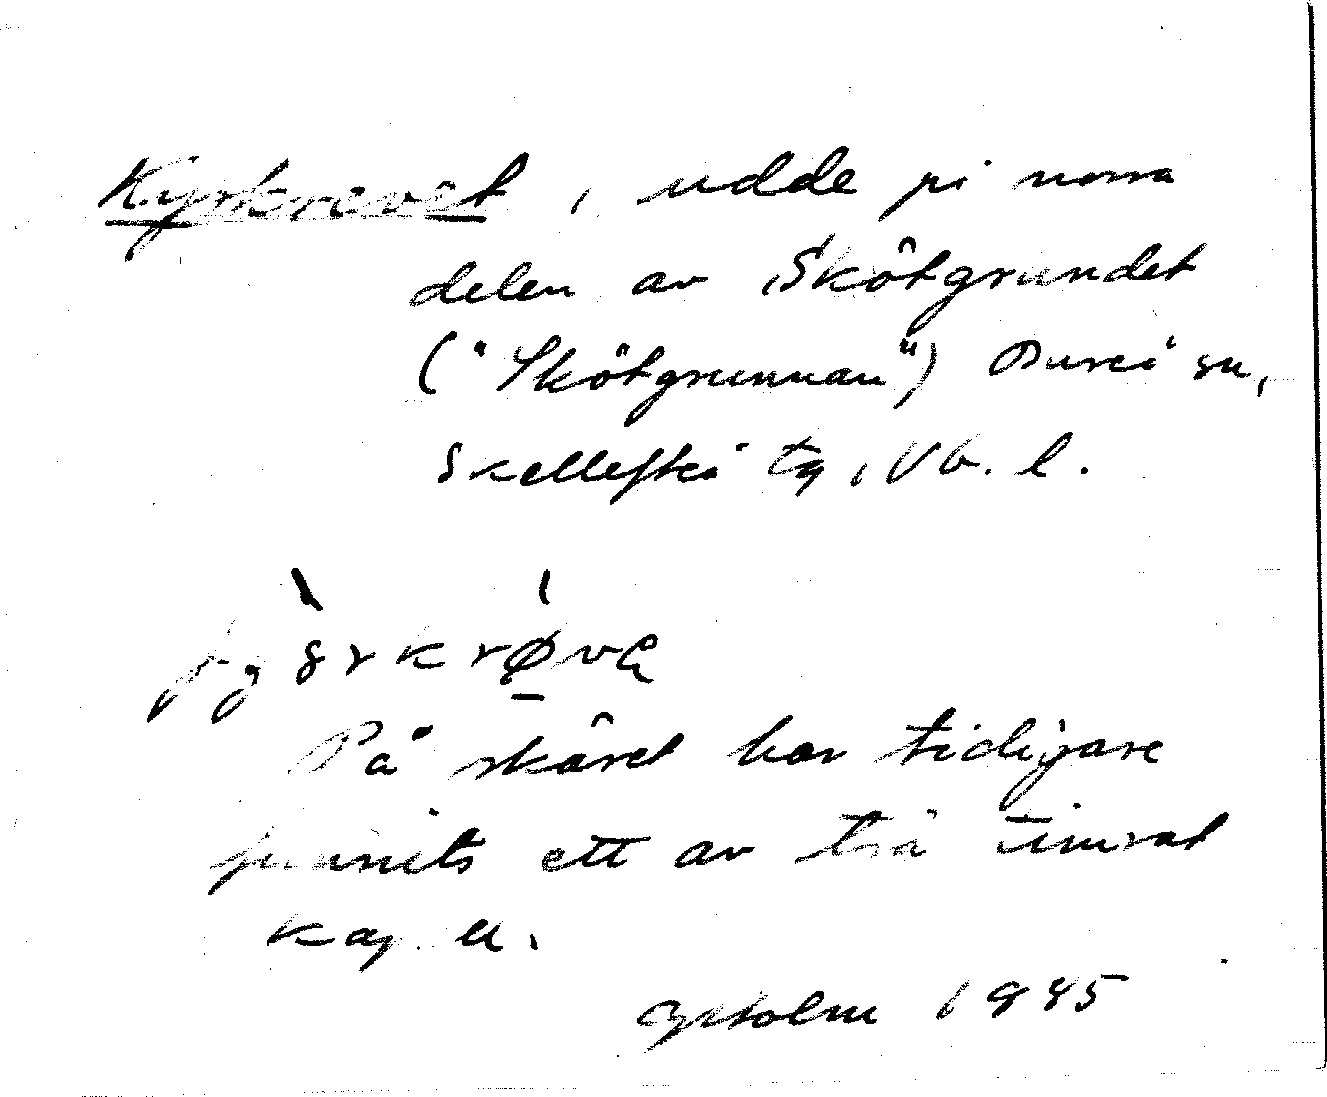 Kyrkrevet, udde på norra
delen av Skötgrundet
("Skötgrunnan") Bureå sn,
Skellefteå tg, Vb. l.
På skäret har tidigare
funnits ett av trä timrat
kapell.
1985